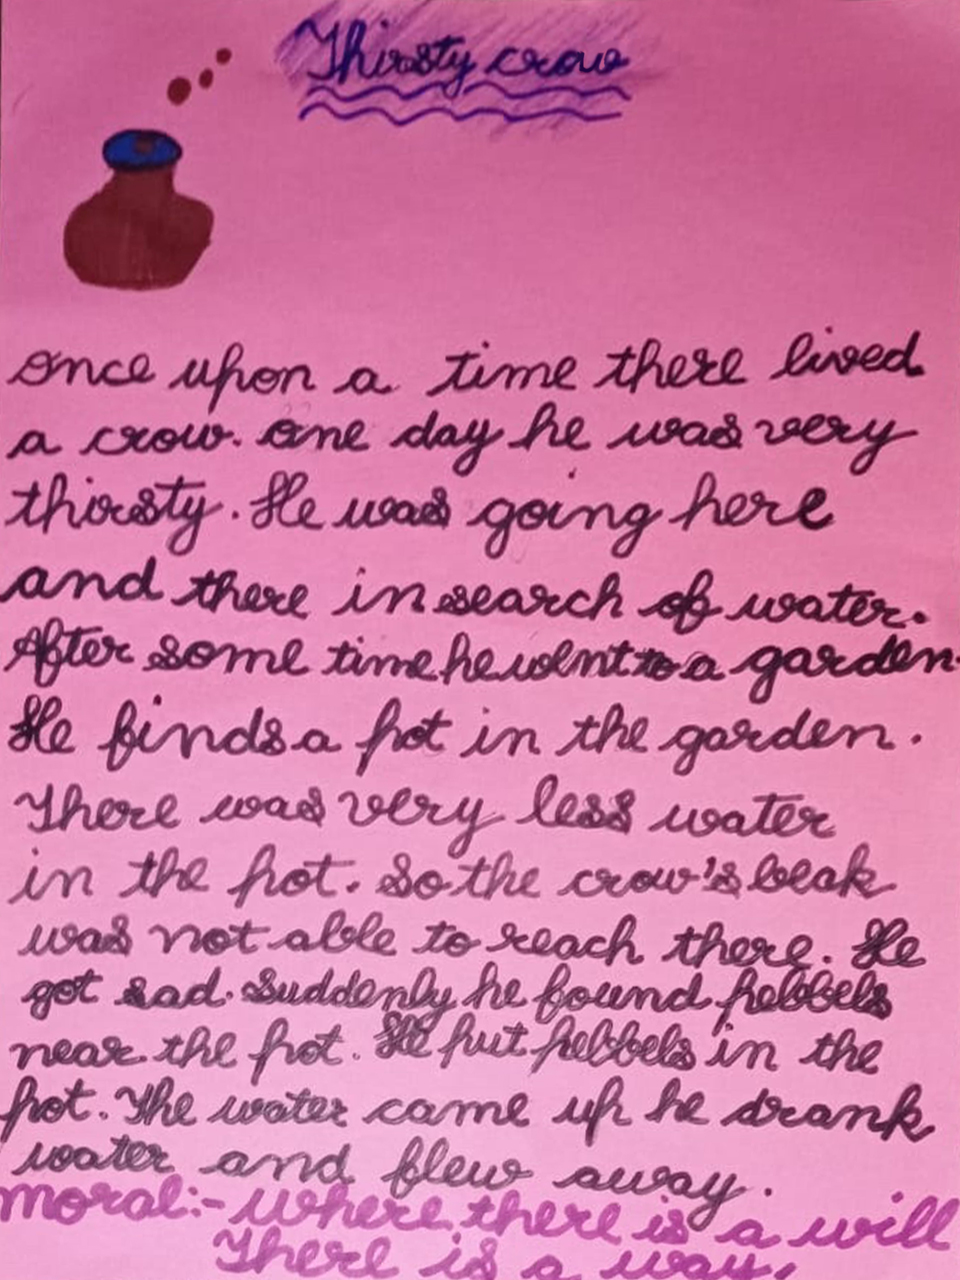 Thirsty crow
Once upon a time there lived
a crow. One day he was very
thirsty. He was going here
and there in search of water.
After some time he went to a garden.
He finds a pot in the garden.
There was very less water
in the pot. So the crow's beak
was not able to reach there. He
got sad. Suddenly he found pebbels
near the pot. He put pebbels in the
pot. The water came up he drank
water and flew away.
Moral:- where there is a will
There is a way.